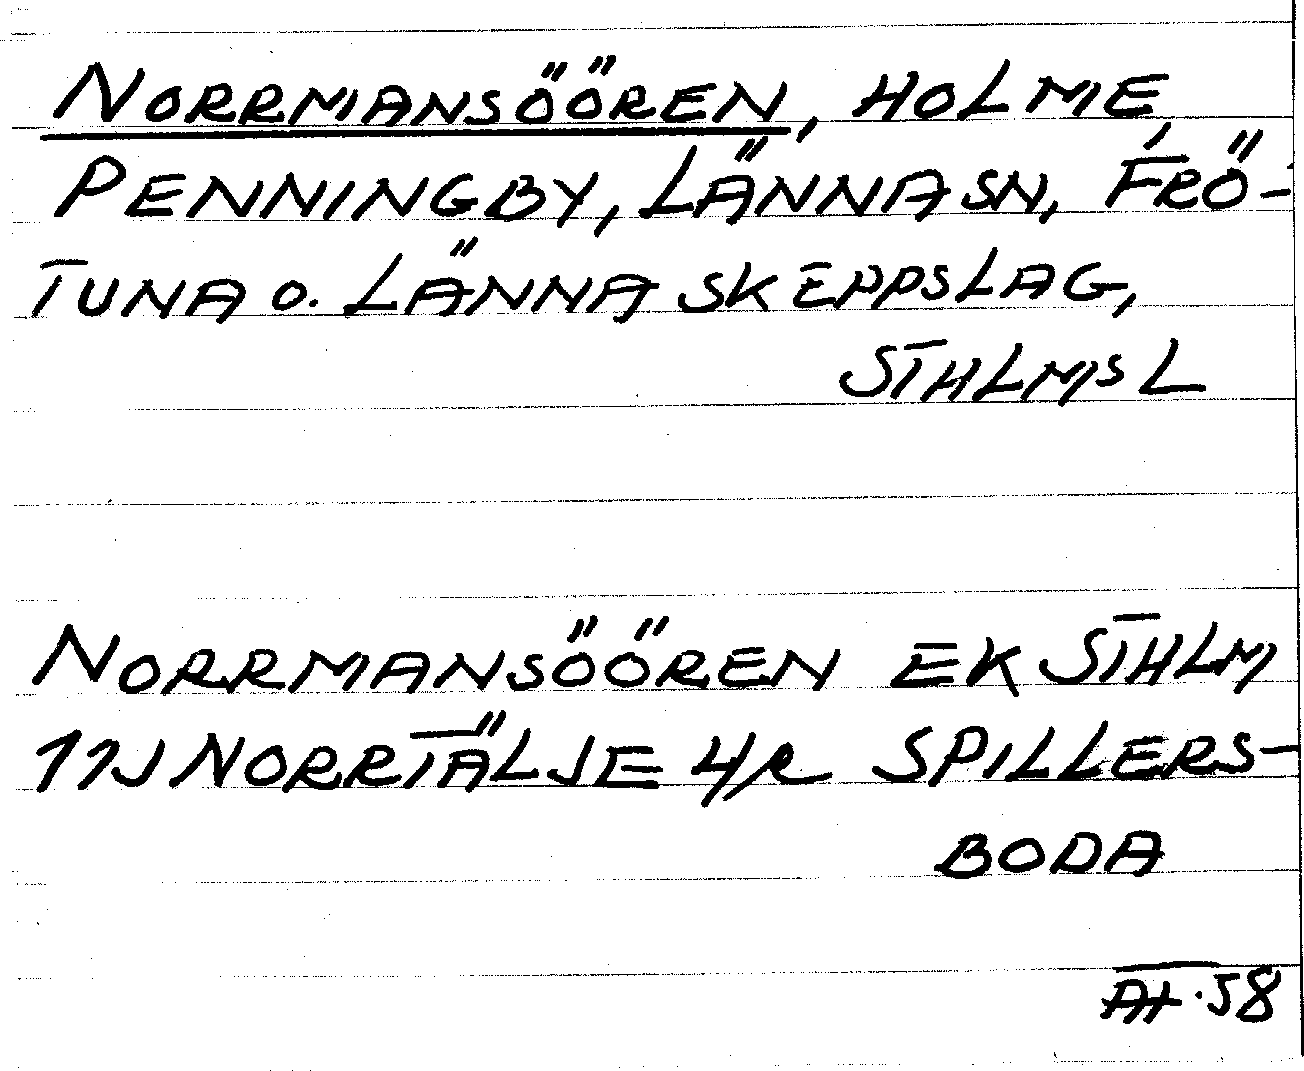 NORRMANSÖÖREN, HOLME,
PENNINGBY, LÄNNA SN, FRÖ-
TUNA O. LÄNNA SKEPPSLAG,
STHLMS L
NORRMANSÖÖREN EK STHLM
11J NORRTÄLJE 4/R SPILLERS-
BODA
58